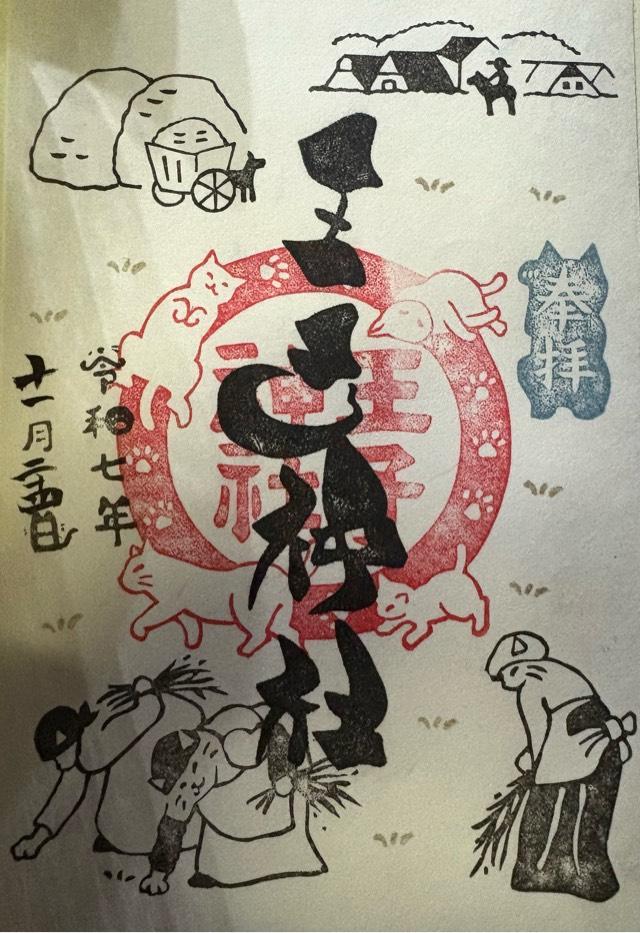 奉拝
王子神社
王子
神社
令和七年
十一月日